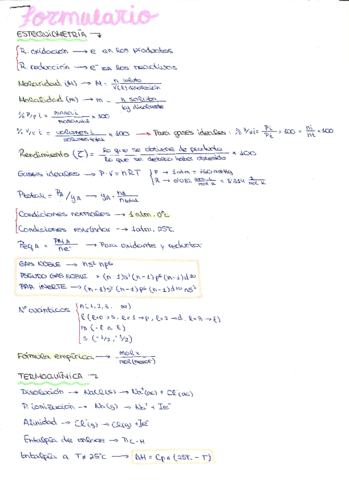 Formulario
ESTEQUIOMETRÍA →
R. oxidación → e⁻ en los productos
R. reducción → e⁻ en los reactivos
Molaridad (M) → M = n soluto / V(l) disolución
Molalidad (m) → m = n soluto / kg disolvente
% P/P i = masa i / masa total × 100
% V/V i = volumen i / volumen total × 100 → Para gases ideales: % V/Vi = Pi/Pt × 100 = ni/nt × 100
Rendimiento (τ) = Lo que se obtiene de producto / Lo que se debería haber obtenido × 100
Gases ideales → P·V = nRT
P → 1 atm = 760 mmHg
R → 0'082 = 8'314
Ptotal = PA / yA → yA = nA / ntotal
Condiciones normales → 1 atm, 0ºC
Condiciones estándar → 1 atm, 25ºC
Peq A = PM A / ne⁻ → Para oxidantes y reductor
GAS NOBLE → ns² np⁶
PSEUDO GAS NOBLE → (n-1)s² (n-1)p⁶ (n-1)d¹⁰
PAR INERTE → (n-1)s² (n-1)p⁶ (n-1)d¹⁰ ns²
Nº cuánticos
n (1, 2, 3, ∞)
l (l=0→s, l=1→p, l=2→d, l=3→f)
m (-l a l)
s (-1/2, 1/2)
Fórmula empírica → mol x / mol (menor)
TERMOQUÍMICA →
Disolución → NaCl(s) → Na⁺(ac) + Cl⁻(ac)
P. ionización → Na(g) → Na⁺ + 1e⁻
Afinidad → Cl⁻(g) → Cl(g) + 1e⁻
Entalpía de enlaces → B C-H
Entalpía a T ≠ 25ºC → ΔH = Cp · (25ºC - T)